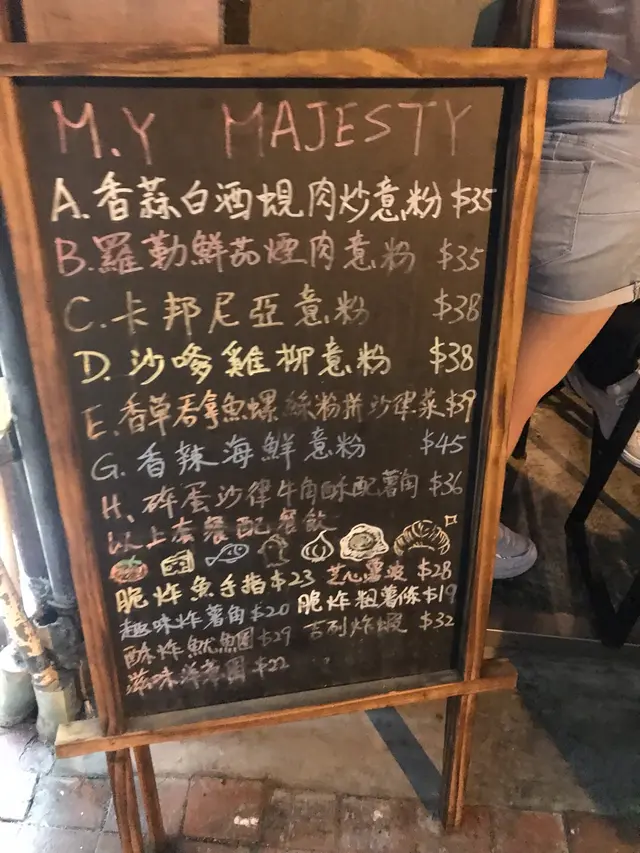 M.Y MAJESTY
A.香蒜白酒蜆肉炒意粉 $35
B.羅勒鮮茄煙肉意粉 $35
C.卡邦尼亞意粉 $38
D.沙嗲雞柳意粉 $38
E.香草吞拿魚螺絲粉拼沙律菜 $39
G.香辣海鮮意粉 $45
H.碎蛋沙律牛角酥配薯角 $36
以上套餐配餐飲
脆炸魚手指 $23 芝心薯波 $28
趣味炸薯角 $20 脆炸粗薯條 $19
酥炸魷魚圈 $29 吉列炸蝦 $32
滋味洋葱圈 $22